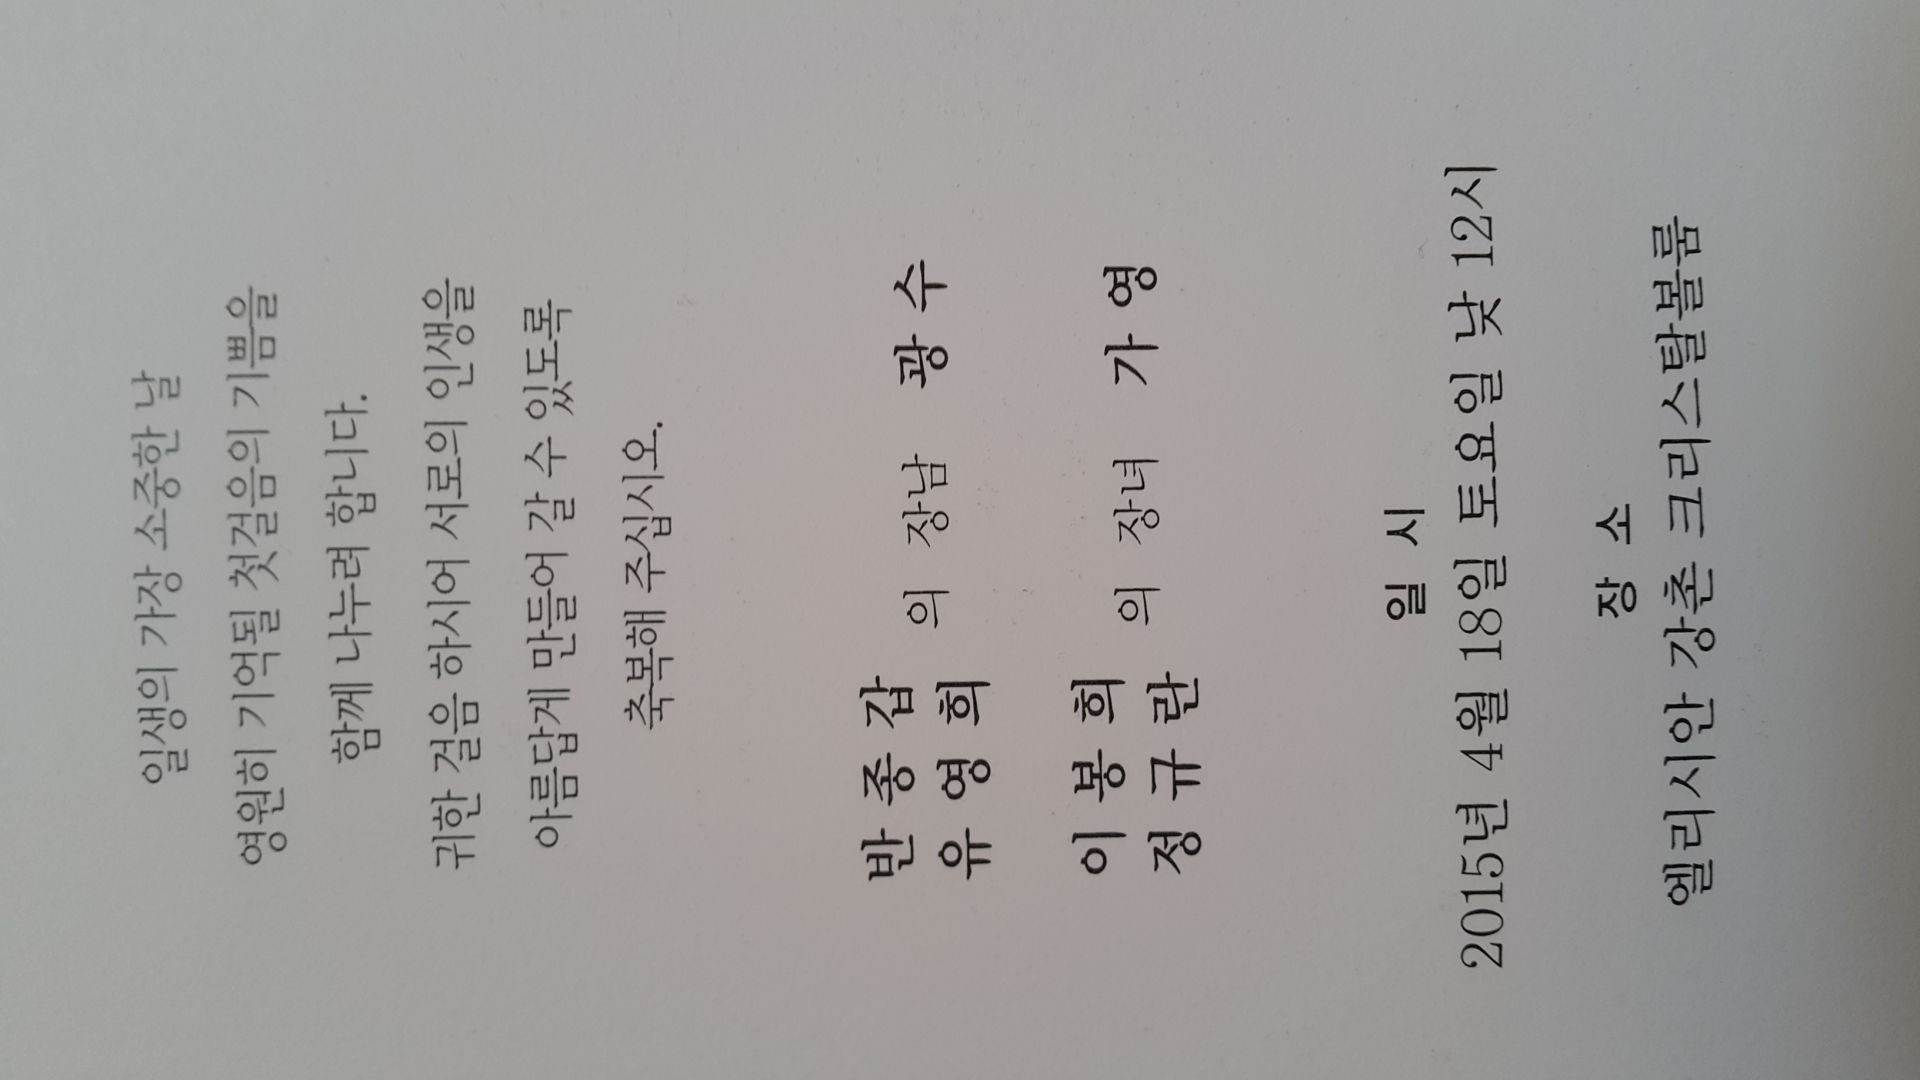 일생의 가장 소중한 날
영원히 기억될 첫걸음의 기쁨을
함께 나누려 합니다.
귀한 걸음 하시어 서로의 인생을
아름답게 만들어 갈 수 있도록
축복해 주십시오.
반종갑
유영희 의 장남 광수
이봉희
정규란 의 장녀 가영
일 시
2015년 4월 18일 토요일 낮 12시
장 소
엘리시안 강촌 크리스탈볼룸